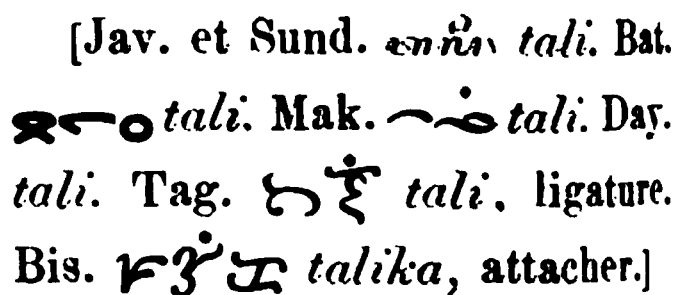 [Jav. et Sund. ꦠꦭꦶ tali. Bat.
ᯖᯞᯪ tali. Mak. ᨈᨒᨗ tali. Day.
tali. Tag. ᜆᜎᜒ tali, ligature.
Bis. ᜆᜎᜒᜃ talika, attacher.]